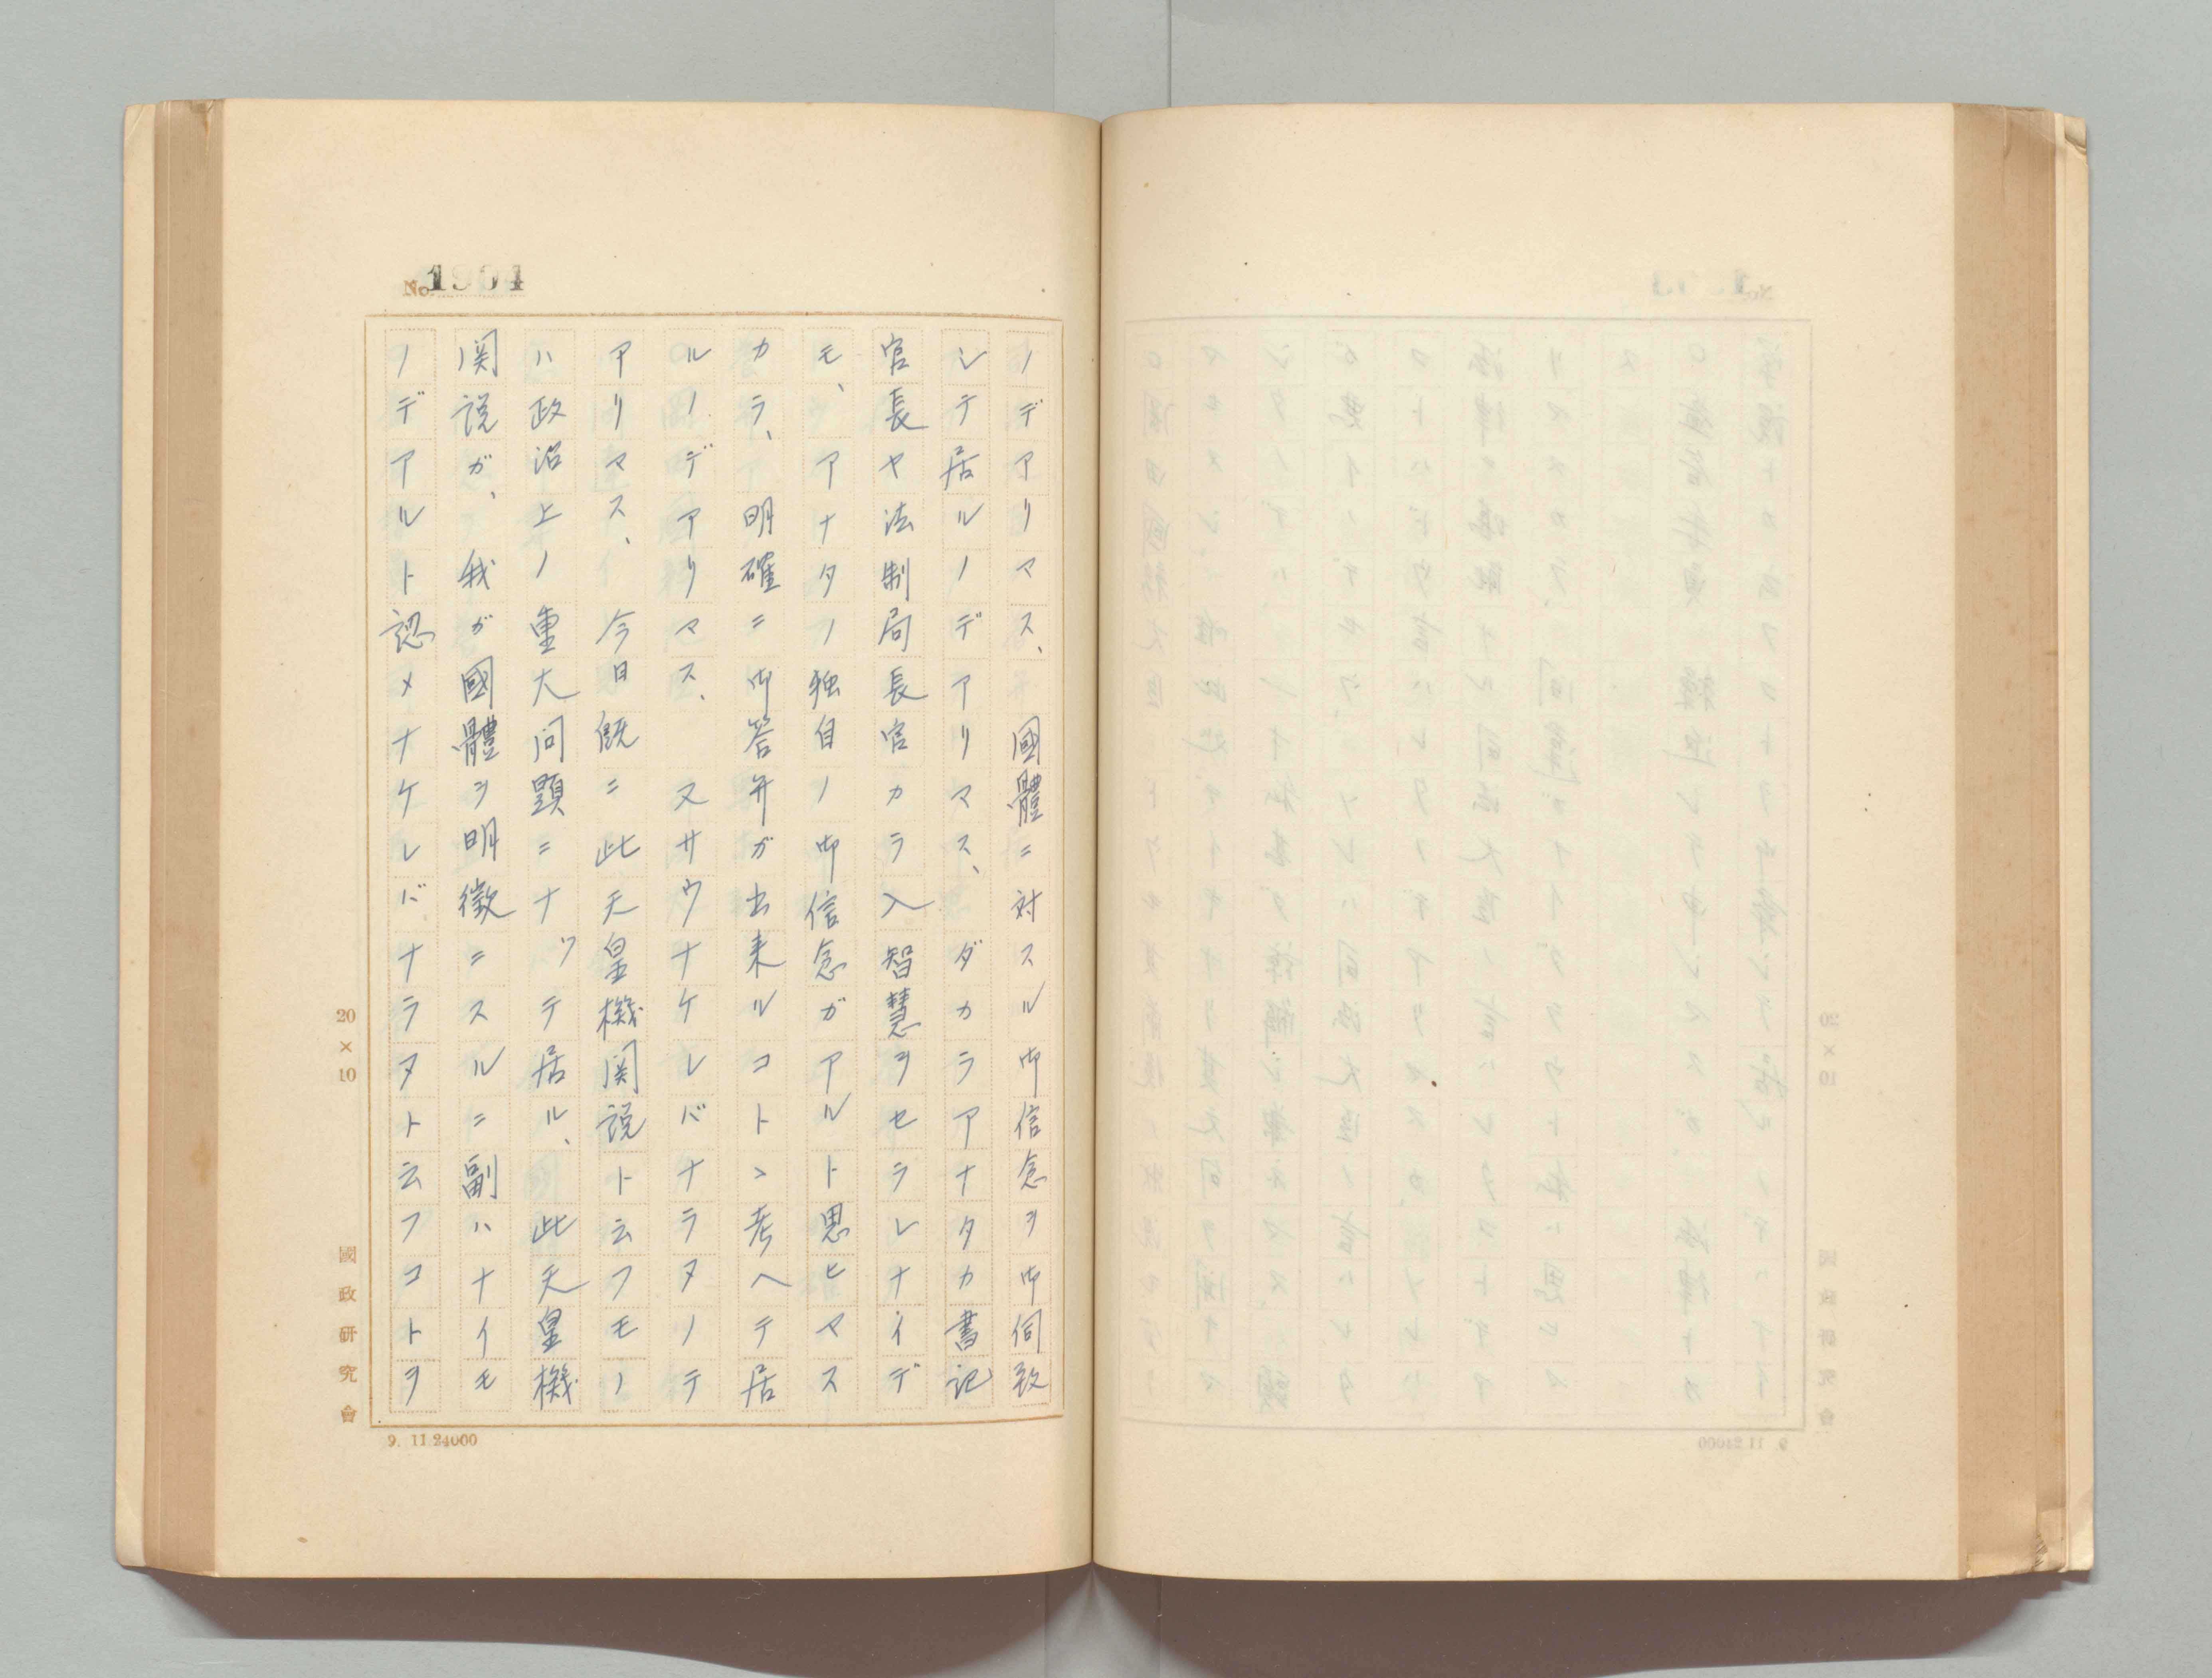 No. 1904
ノデアリマス、國體ニ対スル御信念ヲ御伺致
シテ居ルノデアリマス、ダカラアナタカ書記
官長ヤ法制局長官カラ入智慧ヲセラレナイデ
モ、アナタノ独自ノ御信念ガアルト思ヒマス
カラ、明確ニ御答弁ガ出来ルコトヽ考ヘテ居
ルノデアリマス、又サウナケレバナラヌノテ
アリマス、今日既ニ此天皇機関説ト云フモノ
ハ政治上ノ重大问題ニナツテ居ル、此天皇機
関説ガ、我ガ國體ヲ明徴ニスルニ副ハナイモ
ノデアルト認メナケレバナラヌト云フコトヲ
20×10
國政研究會
9. 11.24000